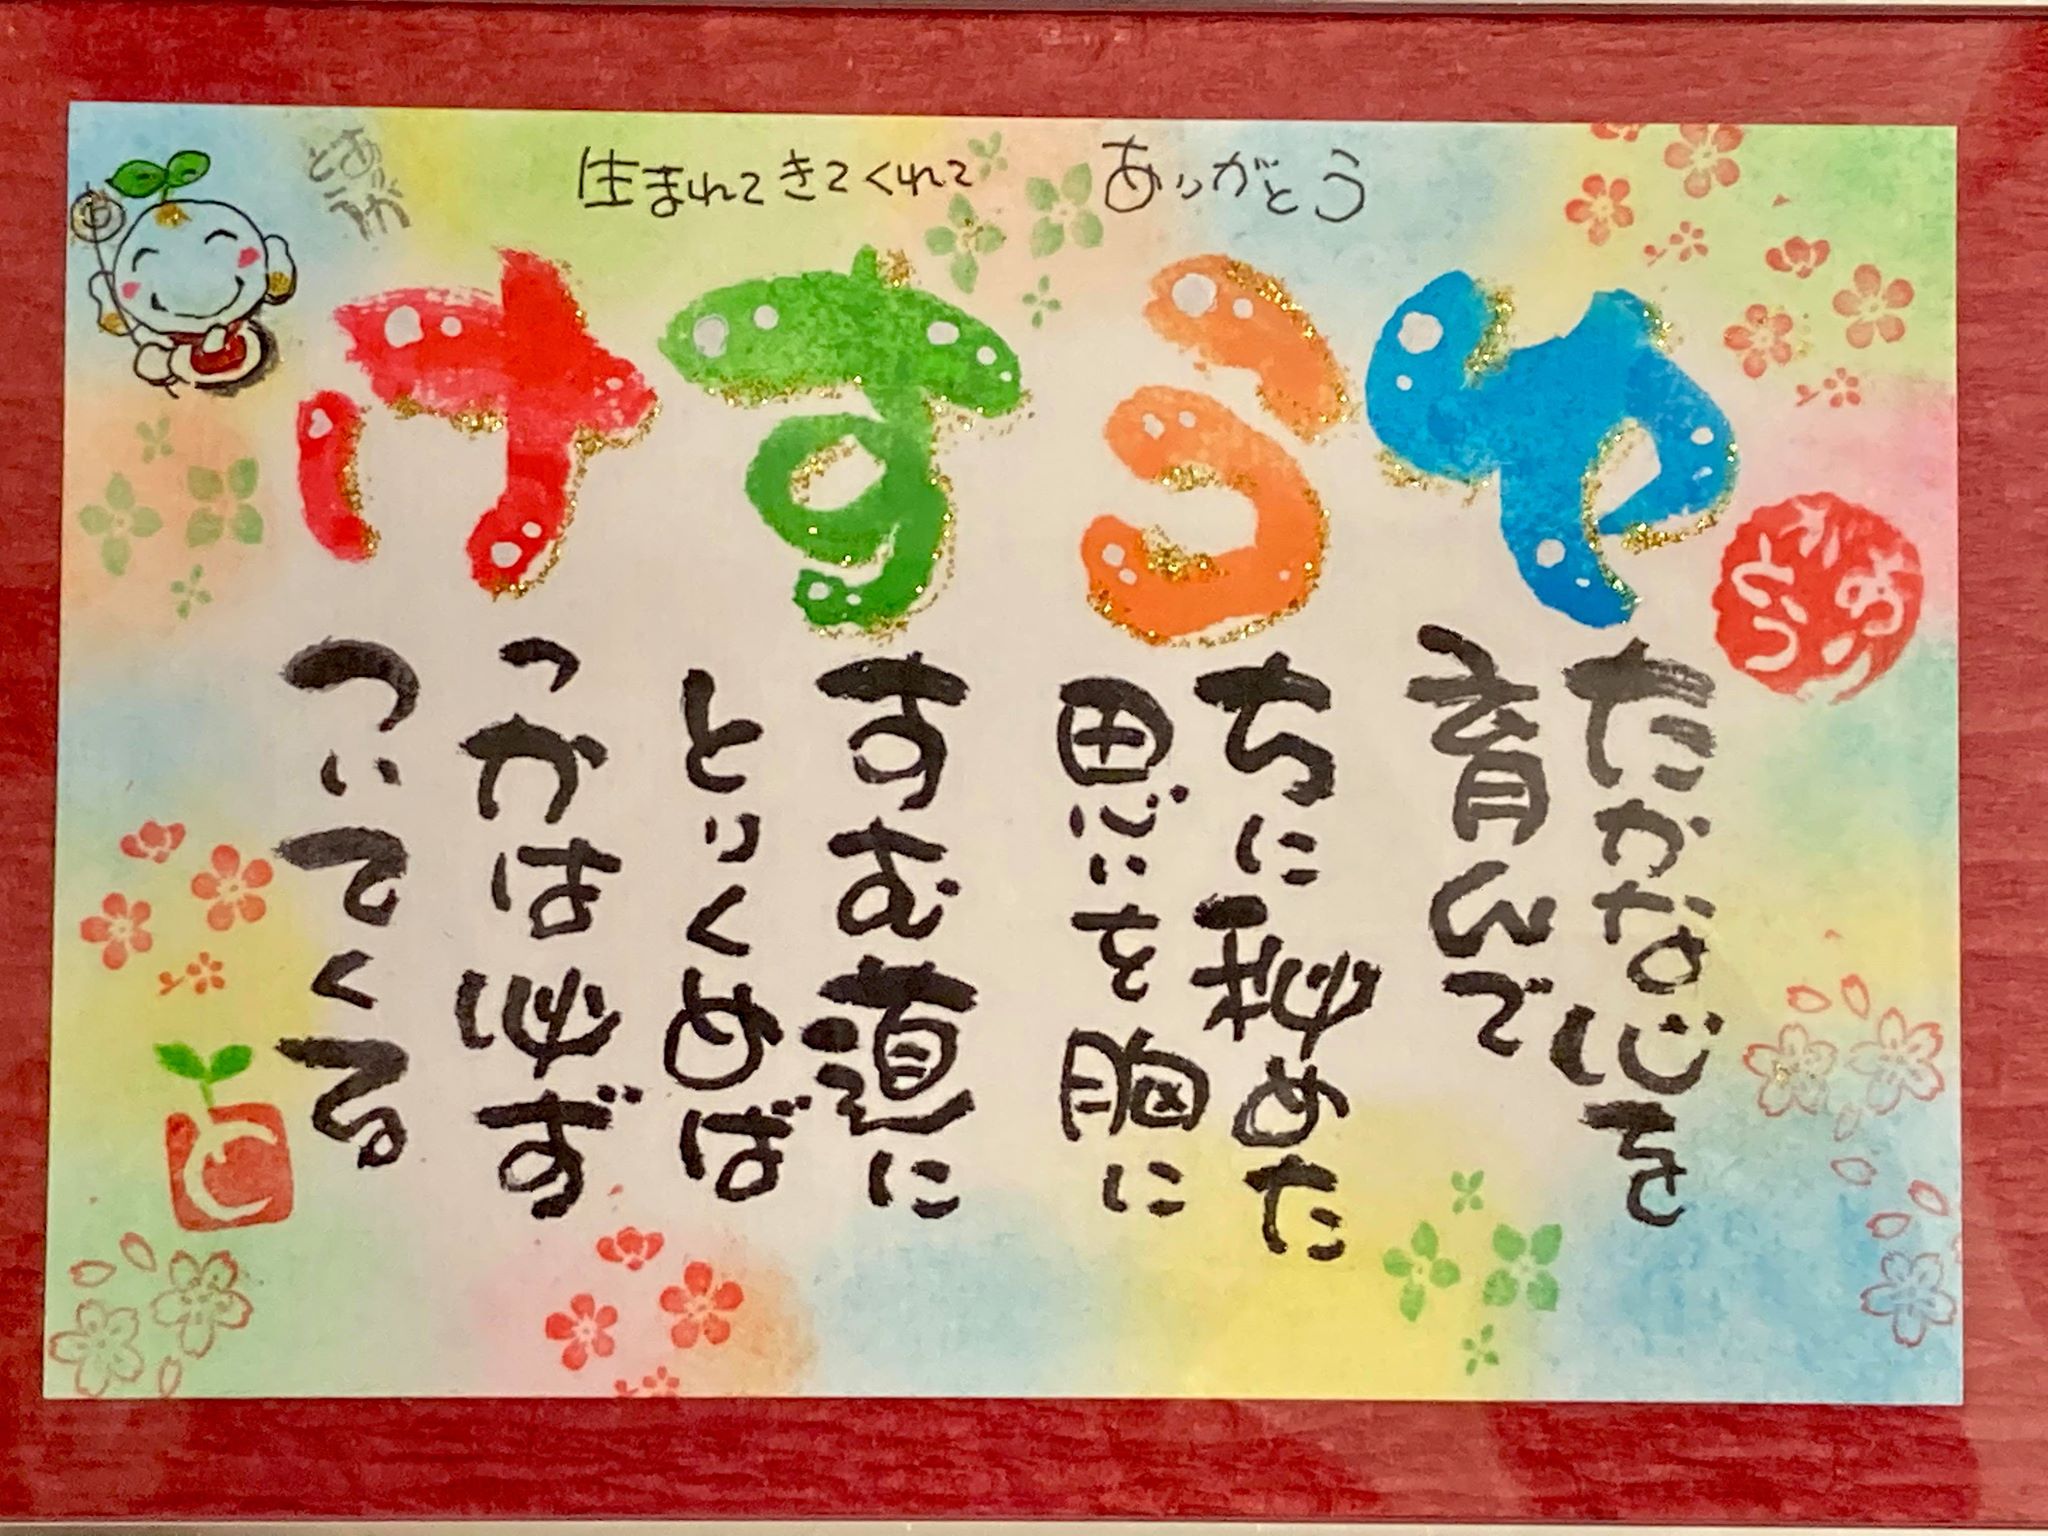 生まれてきてくれて ありがとう
ありがとう
ゆ
たかな心を
育んで
う
ちに秘めた
思いを胸に
す
すむ道に
とりくめば
け
っかは必ず
ついてくる